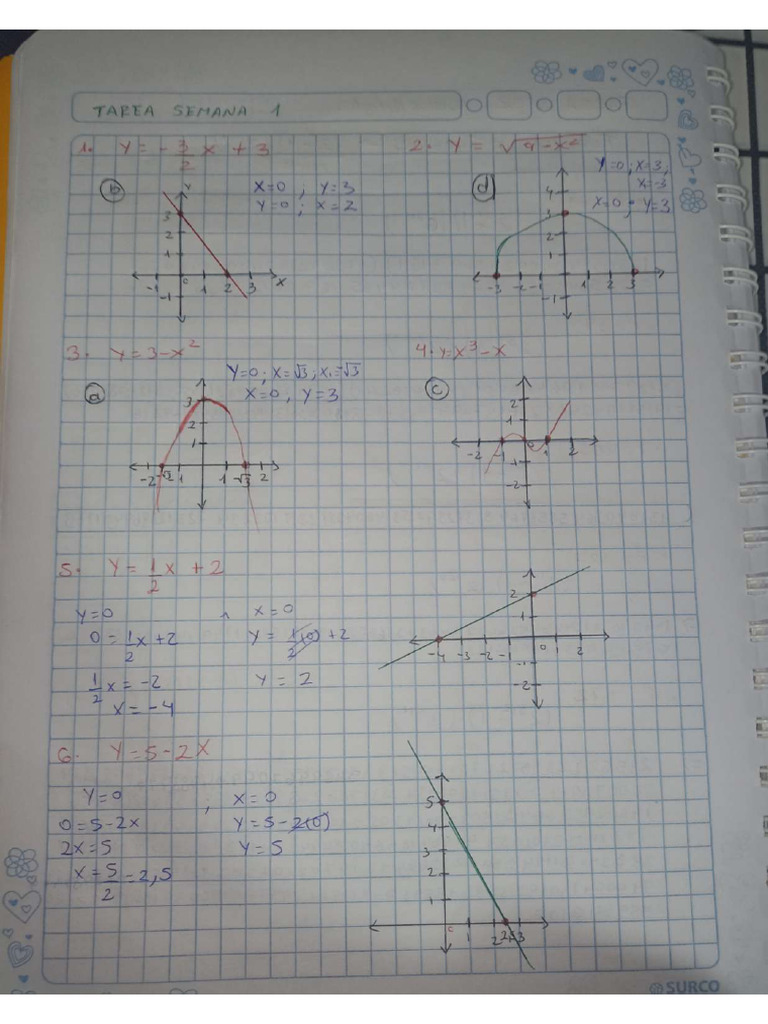 TAREA SEMANA 1
1. y = -3/2 x + 3
b
x=0 ; y=3
y=0 ; x=2
y
3
2
1
-1 0 1 2 3 x
-1
2. y = √9-x²
d
y=0 ; x=3,
x=-3
x=0 ; y=3
4
3
2
1
-3 -2 -1 1 2 3
-1
3. y = 3-x²
a
y=0 ; x=√3 ; x=-√3
x=0 , y=3
3
2
1
-2 1 1 √3 2
4. y=x³-x
c
2
1
-2 -1 0 1 2
-1
-2
5. y = 1/2 x + 2
y=0 ^ x=0
0 = 1/2 x + 2 y = 1/2 (0) + 2
1/2 x = -2 y = 2
x = -4
2
1
-4 -3 -2 -1 0 1 2
-1
-2
6. y = 5-2x
y=0 , x=0
0=5-2x y=5-2(0)
2x=5 y=5
x = 5/2 = 2,5
5
4
3
2
1
1 2 3
SURCO